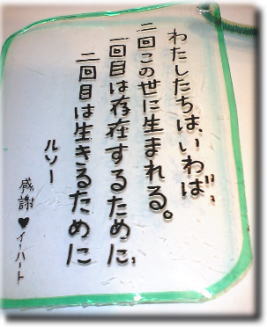 わたしたちは、いわば、
二回この世に生まれる。
一回目は存在するために、
二回目は生きるために
ルソー
感謝♥イーハート